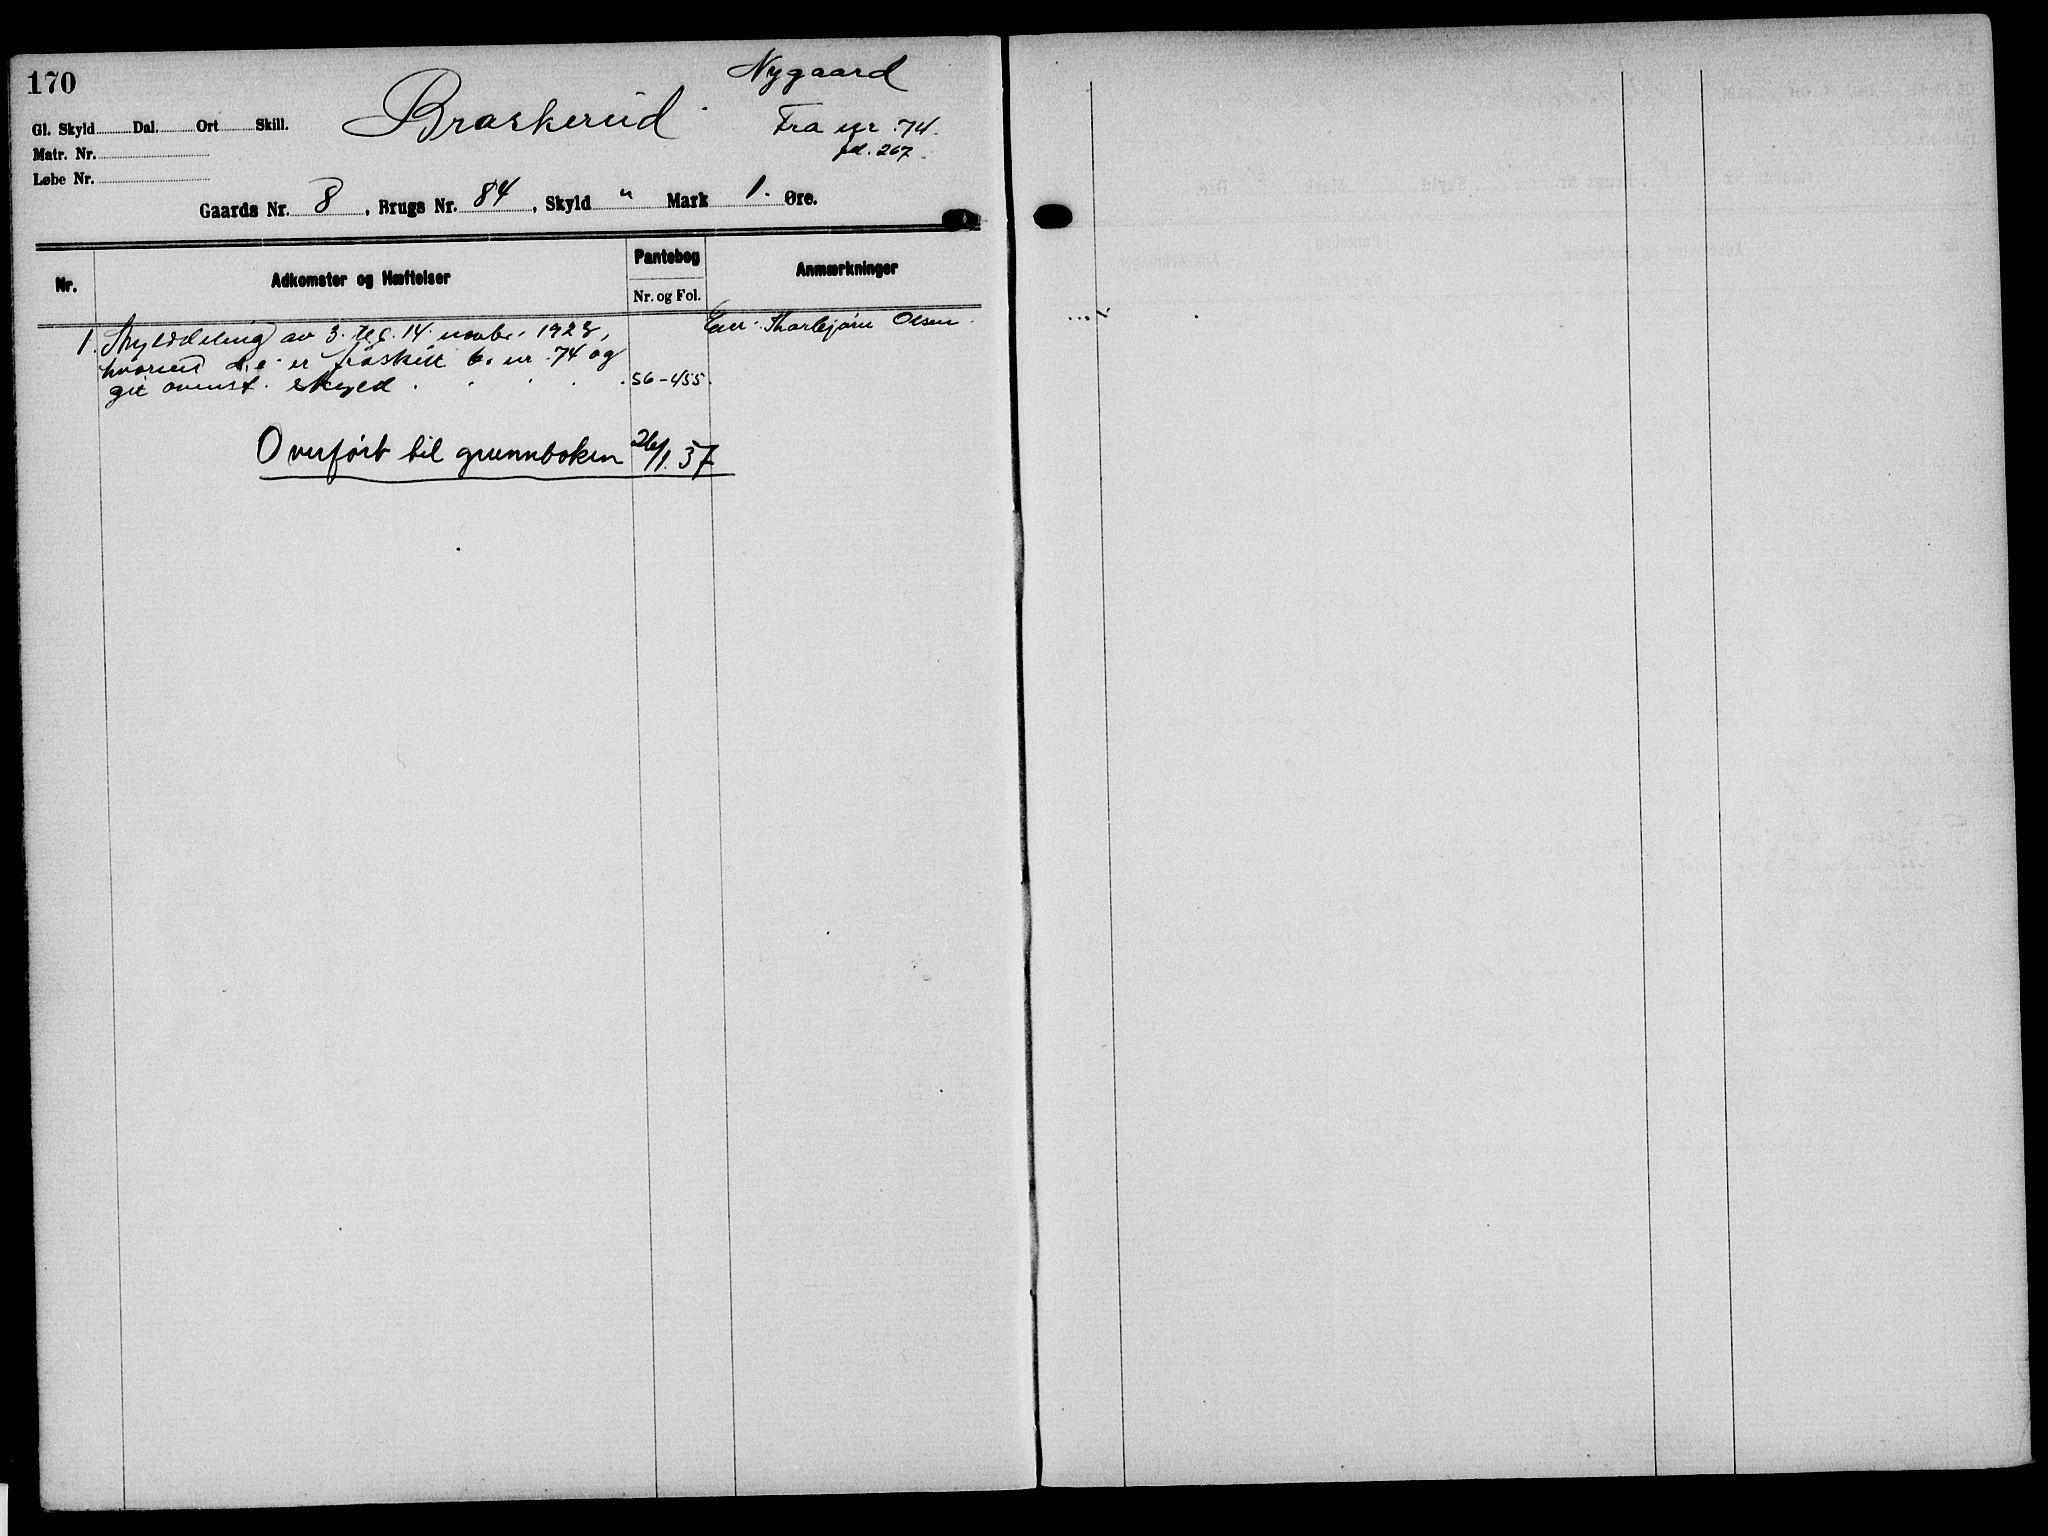 170
Nygaard
Braskerud.
Fra nr. 74.
fol. 267.
Gl. Skyld Dal. Ort Skill.
Matr. Nr.
Løbe Nr.
Gaards Nr. 8, Brugs Nr. 84, Skyld " Mark 1. Øre.
Nr. Adkomster og Hæftelser Pantebog Nr. og Fol. Anmærkninger
1. Skylddeling av 3. tgl. 14. novbr. 1923, Eier: Thorbjørn Olsen.
hvorved d.e. er fraskilt b. nr. 74 og
git ovenst. skyld . . . . . 56-455.
Overført til grunnboken 26/1.37